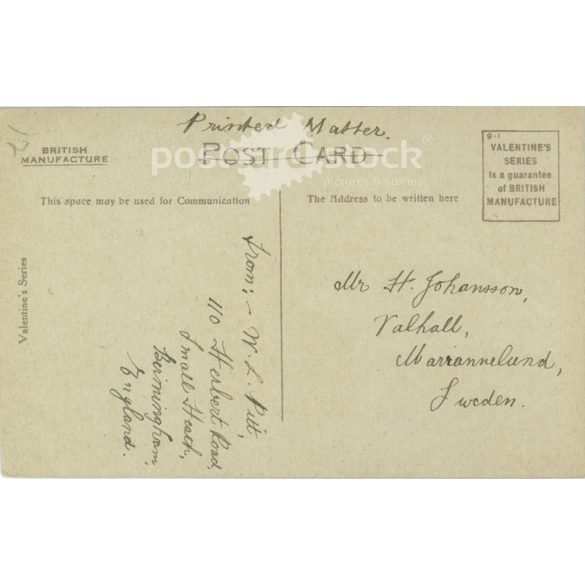 Printed Matter.
21
BRITISH
MANUFACTURE
POST CARD
postcardstock®
pictures & stories
This space may be used for Communication
The Address to be written here
9·1
VALENTINE'S
SERIES
is a guarantee
of BRITISH
MANUFACTURE
Valentine's Series
From:- W. L. Pitt,
110 Herbert Road,
Small Heath,
Birmingham,
England.
Mr H. Johansson,
Valhall,
Mariannelund,
Sweden.